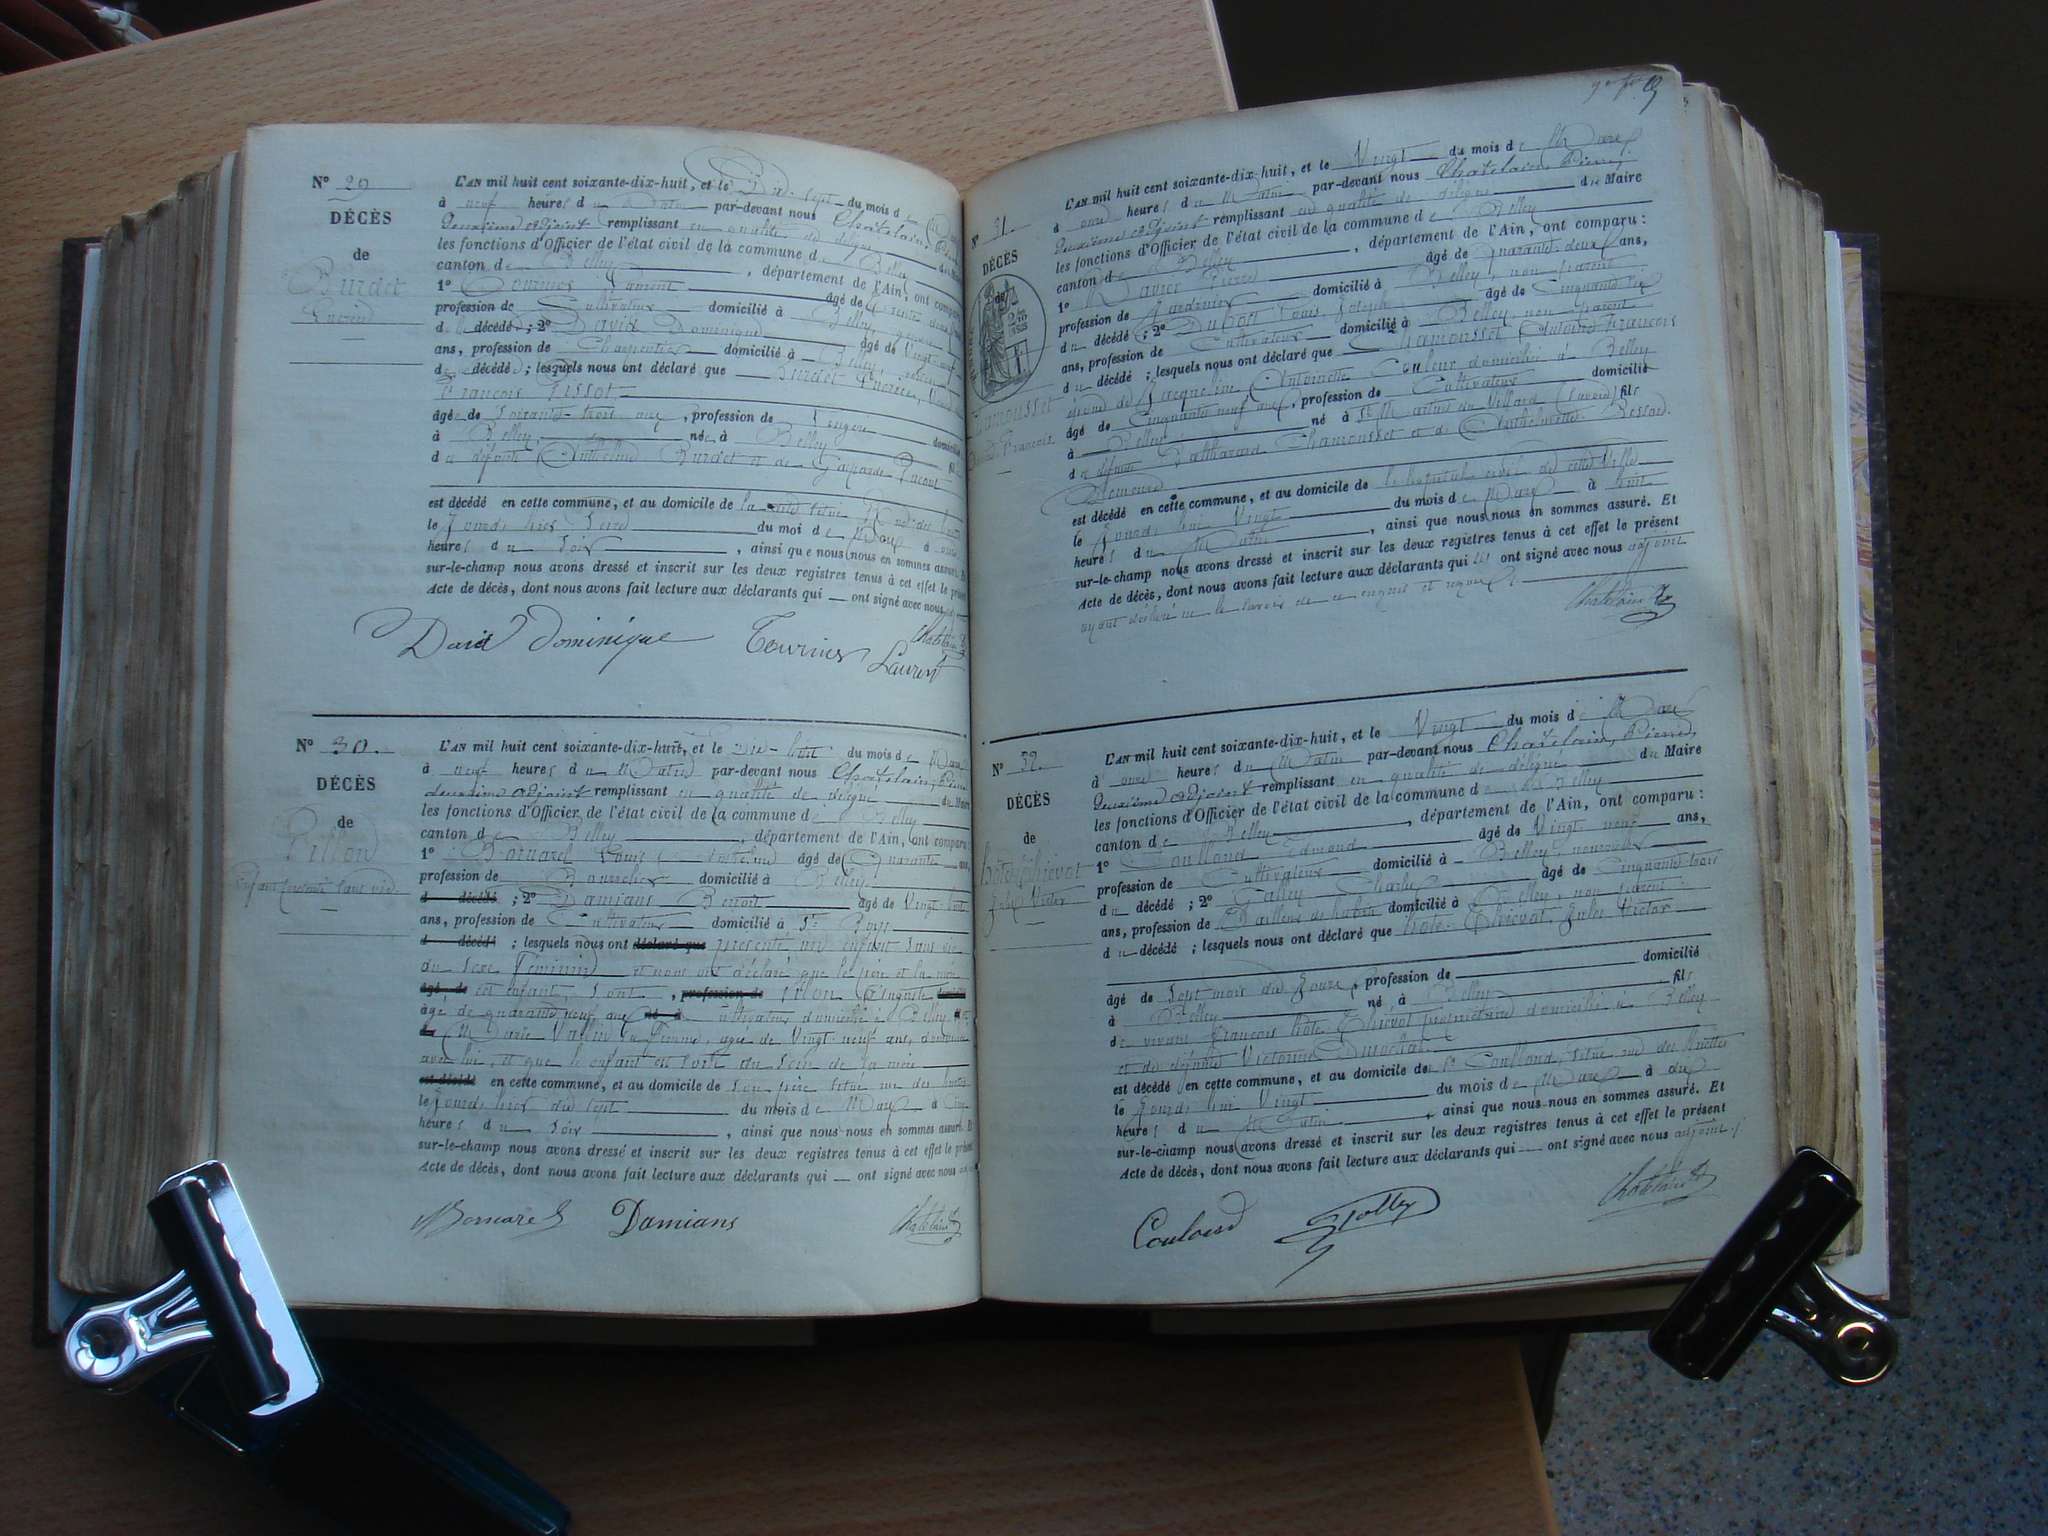 Nº 29
DÉCÈS
de
Burdet
L'AN mil huit cent soixante-dix-huit, et le Dix-sept du mois de
à neuf heures du Matin par-devant nous Chatelain,
Deuxième adjoint remplissant en qualité de délégué du Maire
les fonctions d'Officier de l'état civil de la commune de Belley
canton de Belley, département de l'Ain, ont comparu
1º Tournier Laurent âgé de trente deux
profession de Cultivateur domicilié à Belley,
d décédé ; 2º David Dominique âgé de Vingt
ans, profession de Charpentier domicilié à Belley
d décédé ; lesquels nous ont déclaré que Burdet
François Tissot
âgée de soixante-trois ans, profession de Lingère domicilié
à Belley née à Belley
de défunts Anthelme Burdet et de Gasparde
est décédé en cette commune, et au domicile de la
le Jourd'hier Seize du mois de Mars à onze
heures du Soir, ainsi que nous nous en sommes assuré. Et
sur-le-champ nous avons dressé et inscrit sur les deux registres tenus à cet effet le présent
Acte de décès, dont nous avons fait lecture aux déclarants qui — ont signé avec nous
David Dominique Tournier Laurent Chatelain
Nº 30.
DÉCÈS
de
Pillon
Enfant présenté sans vie.
L'AN mil huit cent soixante-dix-huit, et le Dix-huit du mois de Mars
à neuf heures du Matin par-devant nous Chatelain, Pierre
deuxième adjoint remplissant en qualité de délégué du Maire
les fonctions d'Officier de l'état civil de la commune de Belley
canton de Belley, département de l'Ain, ont comparu :
1º Bornarel Louis Anthelme âgé de Quarante ans,
profession de Bourrelier domicilié à Belley
d décédé ; 2º Damians Benoit âgé de Vingt-huit
ans, profession de Cultivateur domicilié à St
d décédé ; lesquels nous ont déclaré que présenté un enfant sans vie
du sexe Féminin et nous ont déclaré que le père et la mère
âgé de cet enfant, sont, profession de Pillon Auguste
âgé de quarante neuf ans né à cultivateur domicilié à Belley
Marie sa Femme, âgée de Vingt-neuf ans, domiciliée
avec lui, et que le enfant est sorti du sein de sa mère
est décédé en cette commune, et au domicile de son père situé rue des
le Jourd'hier dix sept du mois de Mars à cinq
heures du Soir, ainsi que nous nous en sommes assuré. Et
sur-le-champ nous avons dressé et inscrit sur les deux registres tenus à cet effet le présent
Acte de décès, dont nous avons fait lecture aux déclarants qui — ont signé avec nous
Bornarel Damians Chatelain
Nº 31.
DÉCÈS
de
Chamousset
François
L'AN mil huit cent soixante-dix-huit, et le Vingt du mois de Mars
à onze heures du Matin par-devant nous Chatelain, Pierre,
Deuxième adjoint remplissant en qualité de délégué du Maire
les fonctions d'Officier de l'état civil de la commune de Belley
canton de Belley, département de l'Ain, ont comparu :
1º âgé de Quarante-deux ans,
profession de Jardinier domicilié à Belley, non parent
du décédé ; 2º Dubort Louis Joseph âgé de Cinquante six
ans, profession de Cultivateur domicilié à Belley, non parent
du décédé ; lesquels nous ont déclaré que Chamousset Antoine François
époux de Jacqueline Antoinette Couleur domicilié à Belley
âgé de Cinquante neuf ans, profession de Cultivateur domicilié
à Belley né à St Martin du Villard (Savoie) fils
de défunts Balthazard Chamousset et de Anthelmette Bessard
est décédé en cette commune, et au domicile de le hôpital civil de cette Ville
le Jourd'hui Vingt du mois de Mars à huit
heures du Matin, ainsi que nous nous en sommes assuré. Et
sur-le-champ nous avons dressé et inscrit sur les deux registres tenus à cet effet le présent
Acte de décès, dont nous avons fait lecture aux déclarants qui ont signé avec nous adjoint
ayant déclaré ne le savoir de ce enquis et requis.
Chatelain
Nº 32.
DÉCÈS
de
L'AN mil huit cent soixante-dix-huit, et le Vingt du mois de Mars
à onze heures du Matin par-devant nous Chatelain, Pierre,
Deuxième adjoint remplissant en qualité de délégué du Maire
les fonctions d'Officier de l'état civil de la commune de Belley
canton de Belley, département de l'Ain, ont comparu :
1º Coulloud Edmond âgé de Vingt-neuf ans,
profession de Cultivateur domicilié à Belley nourricier
du décédé ; 2º Charles âgé de Cinquante-trois
ans, profession de Tailleur de habits domicilié à Belley, non parent
du décédé ; lesquels nous ont déclaré que Jules Victor
âgé de Sept mois dix jours, profession de domicilié
à Belley né à Belley fils
de vivant François propriétaire domicilié à Belley
et de défunte Victorine
est décédé en cette commune, et au domicile de Sr Coulloud, situé rue des
le Jourd'hui Vingt du mois de Mars à dix
heures du Matin, ainsi que nous nous en sommes assuré. Et
sur-le-champ nous avons dressé et inscrit sur les deux registres tenus à cet effet le présent
Acte de décès, dont nous avons fait lecture aux déclarants qui — ont signé avec nous adjoint.
Couloud Chatelain